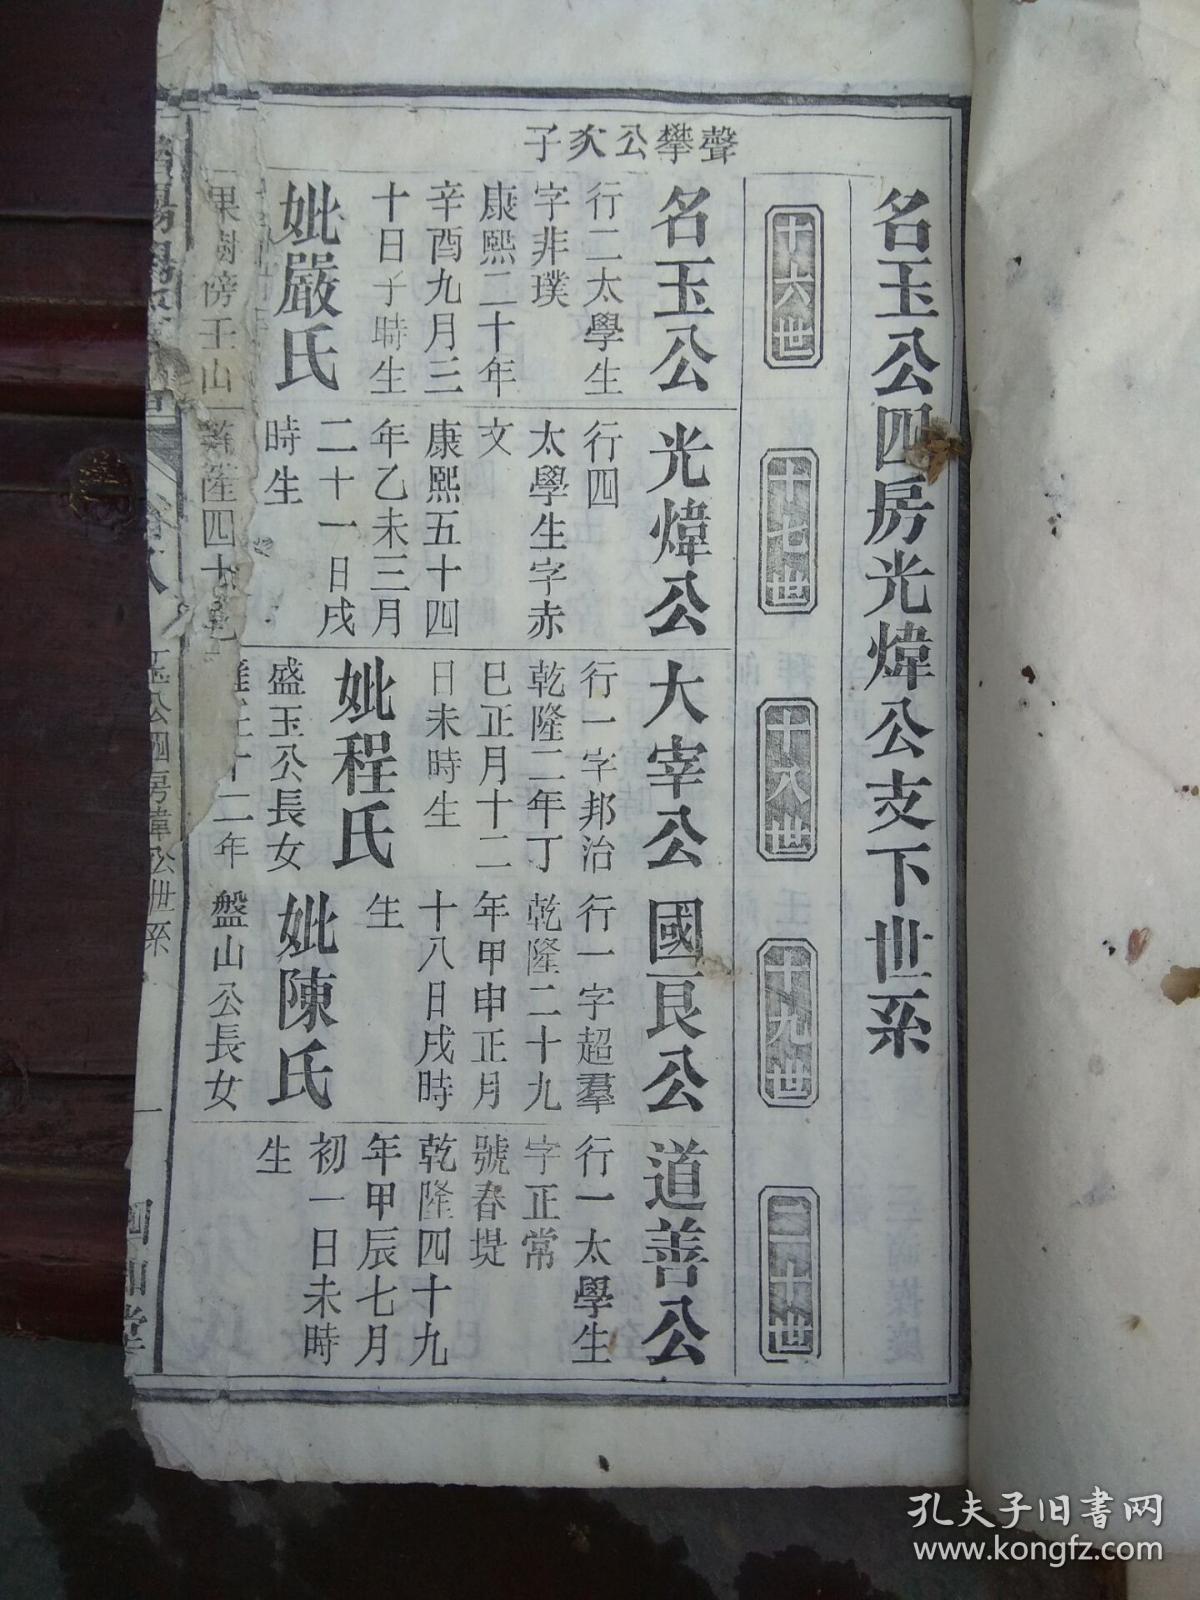 名玉公四房光煒公支下世系
十六世
十七世
十八世
十九世
二十世
聲攀公次子
名玉公
行二太學生
字非璞
康熙二十年
辛酉九月三
十日子時生
妣嚴氏
果樹傍壬山
光煒公
行四
太學生字赤
文
康熙五十四
年乙未三月
二十一日戌
時生
隆四十
大宰公
行一字邦治
乾隆二年丁
巳正月十二
日未時生
妣程氏
盛玉公長女
十二年
國良公
行一字超羣
乾隆二十九
年甲申正月
十八日戌時
生
妣陳氏
盤山公長女
道善公
行一太學生
字正常
號春堤
乾隆四十九
年甲辰七月
初一日未時
生
玉公四房煒公世系
一
堂
孔夫子旧书网
www.kongfz.com